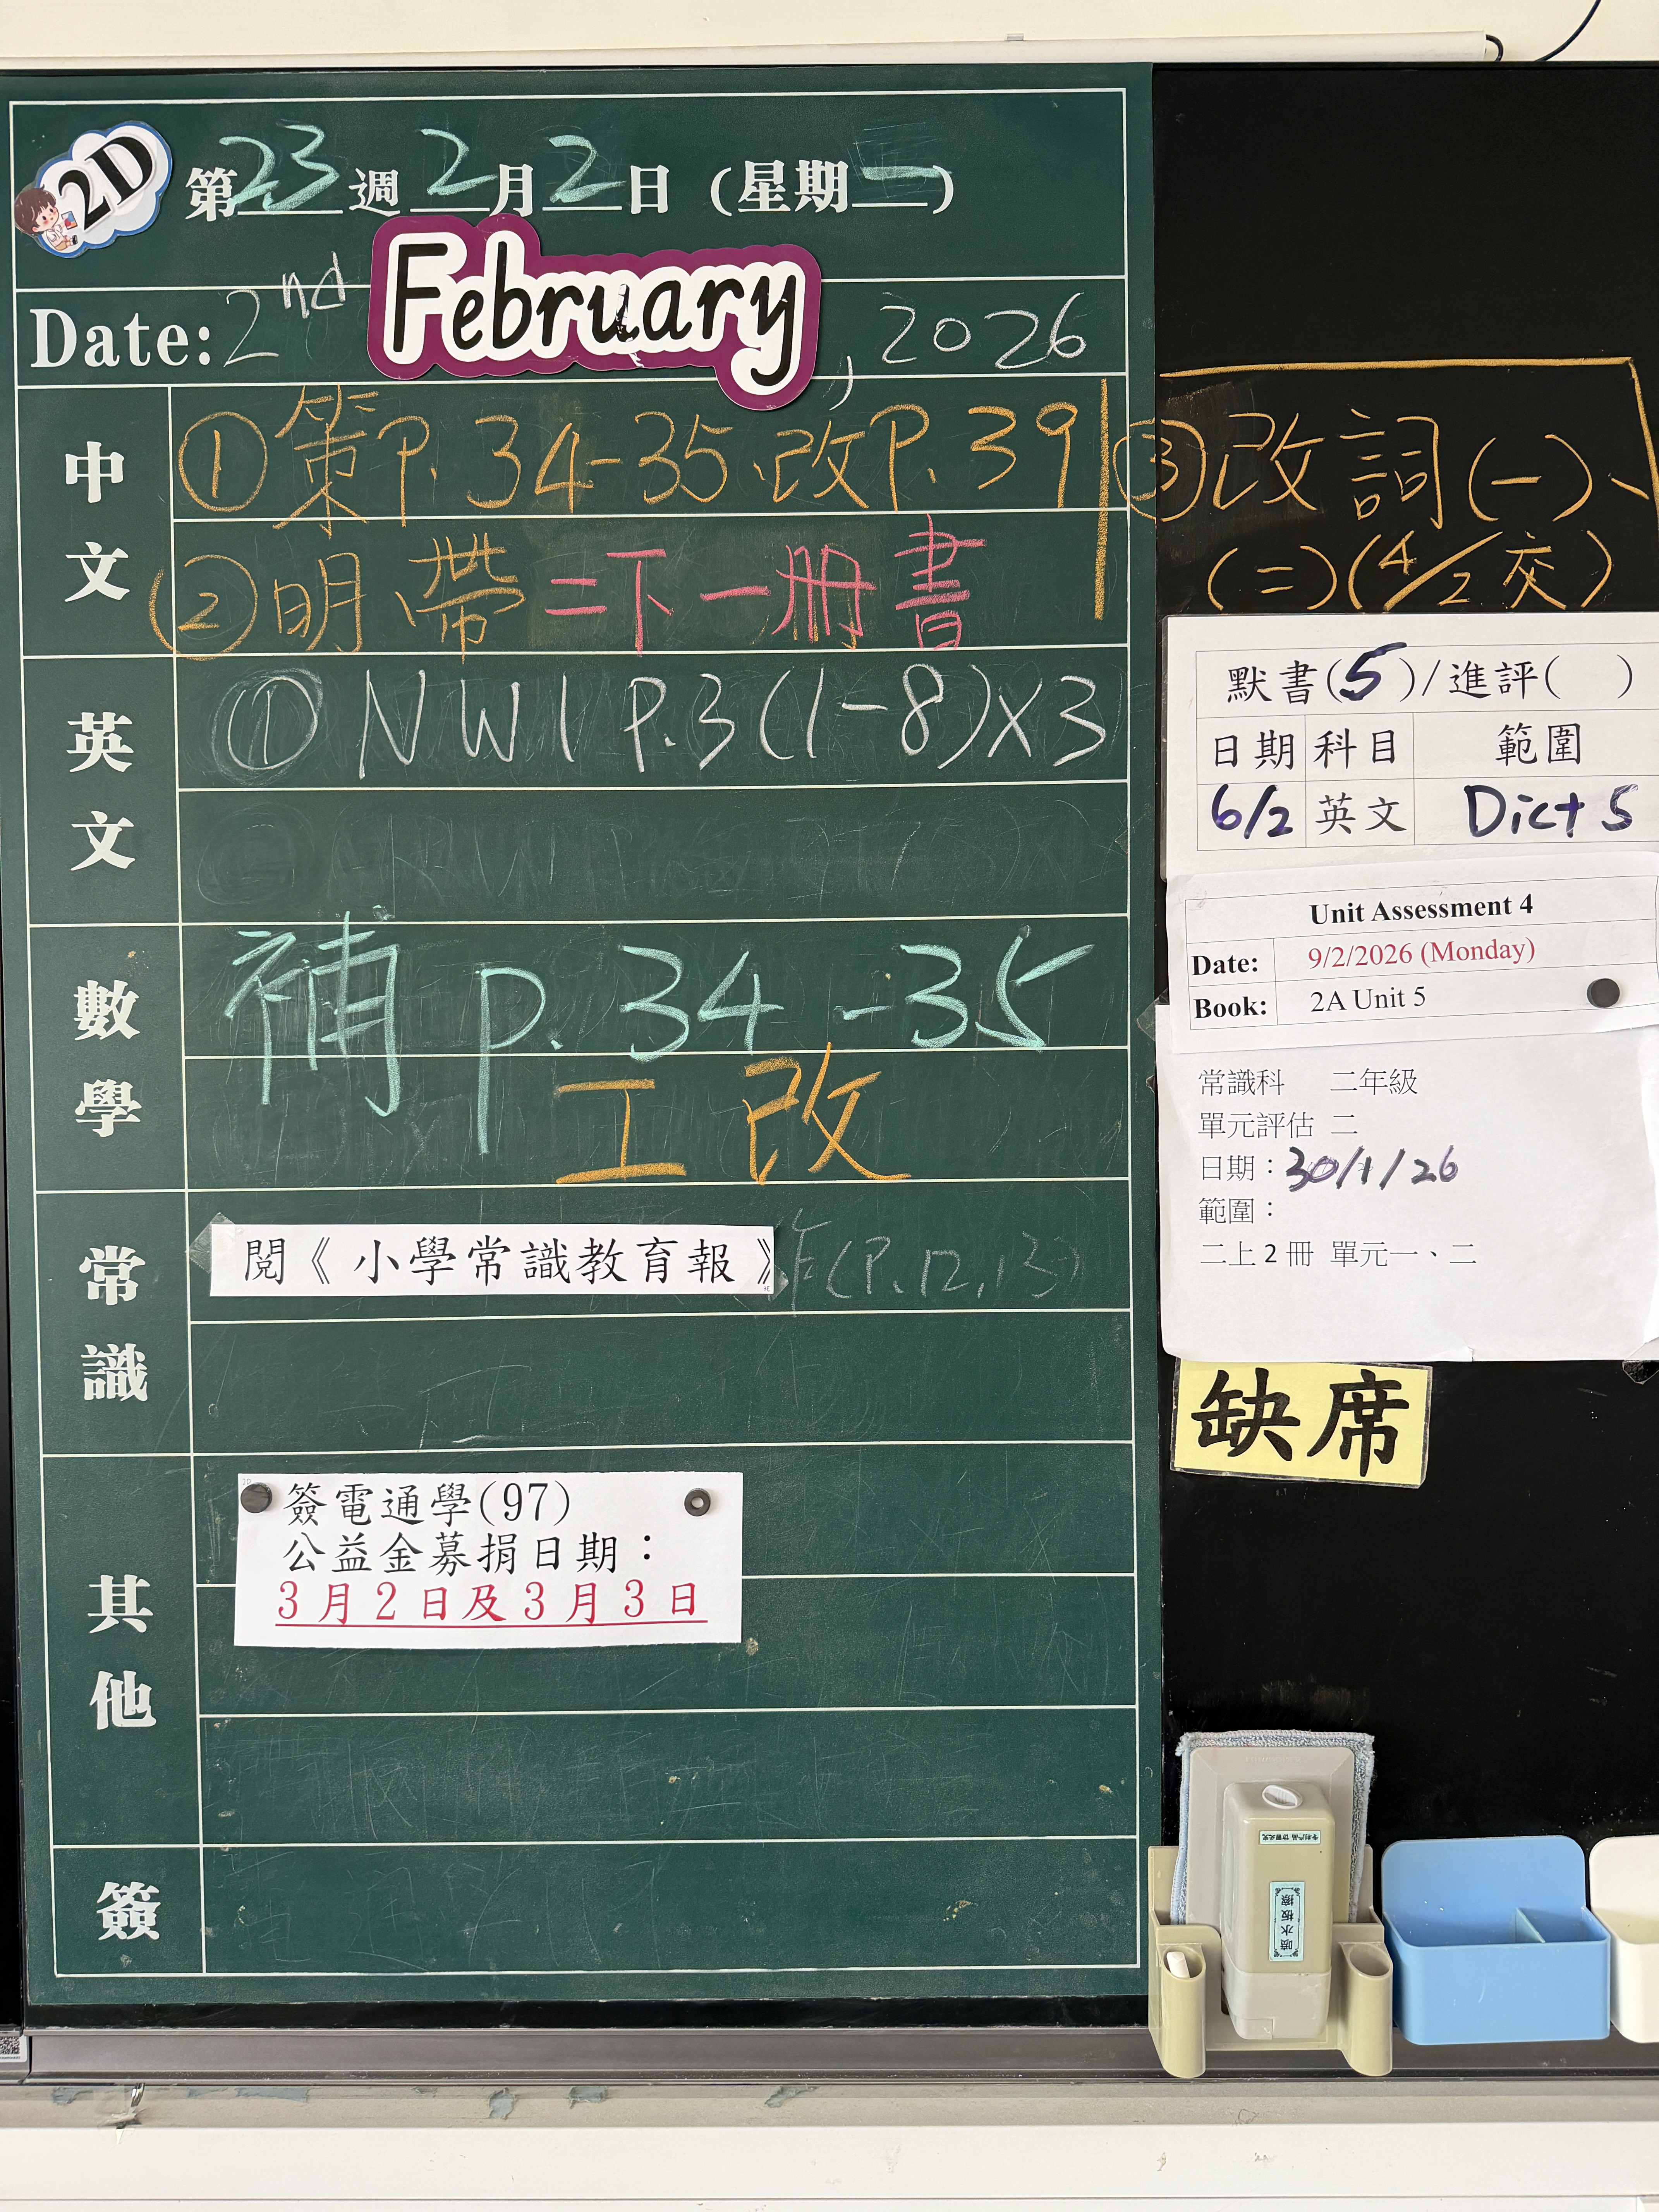 2D
第23週2月2日(星期一)
Date: 2nd February, 2026
中文
①策P.34-35、改P.39
②明帶二下一冊書
③改詞(一)、
(二)(4/2交)
英文
①NW1 P.3(1-8)x3
數學
補 p.34-35
工改
常識
閱《小學常識教育報》
作(P.12,13)
其他
簽電通學(97)
公益金募捐日期:
3月2日及3月3日
簽
默書(5)/進評( )
日期 科目 範圍
6/2 英文 Dict 5
Unit Assessment 4
Date: 9/2/2026 (Monday)
Book: 2A Unit 5
常識科 二年級
單元評估 二
日期:30/1/26
範圍:
二上2冊 單元一、二
缺席
噴水板擦